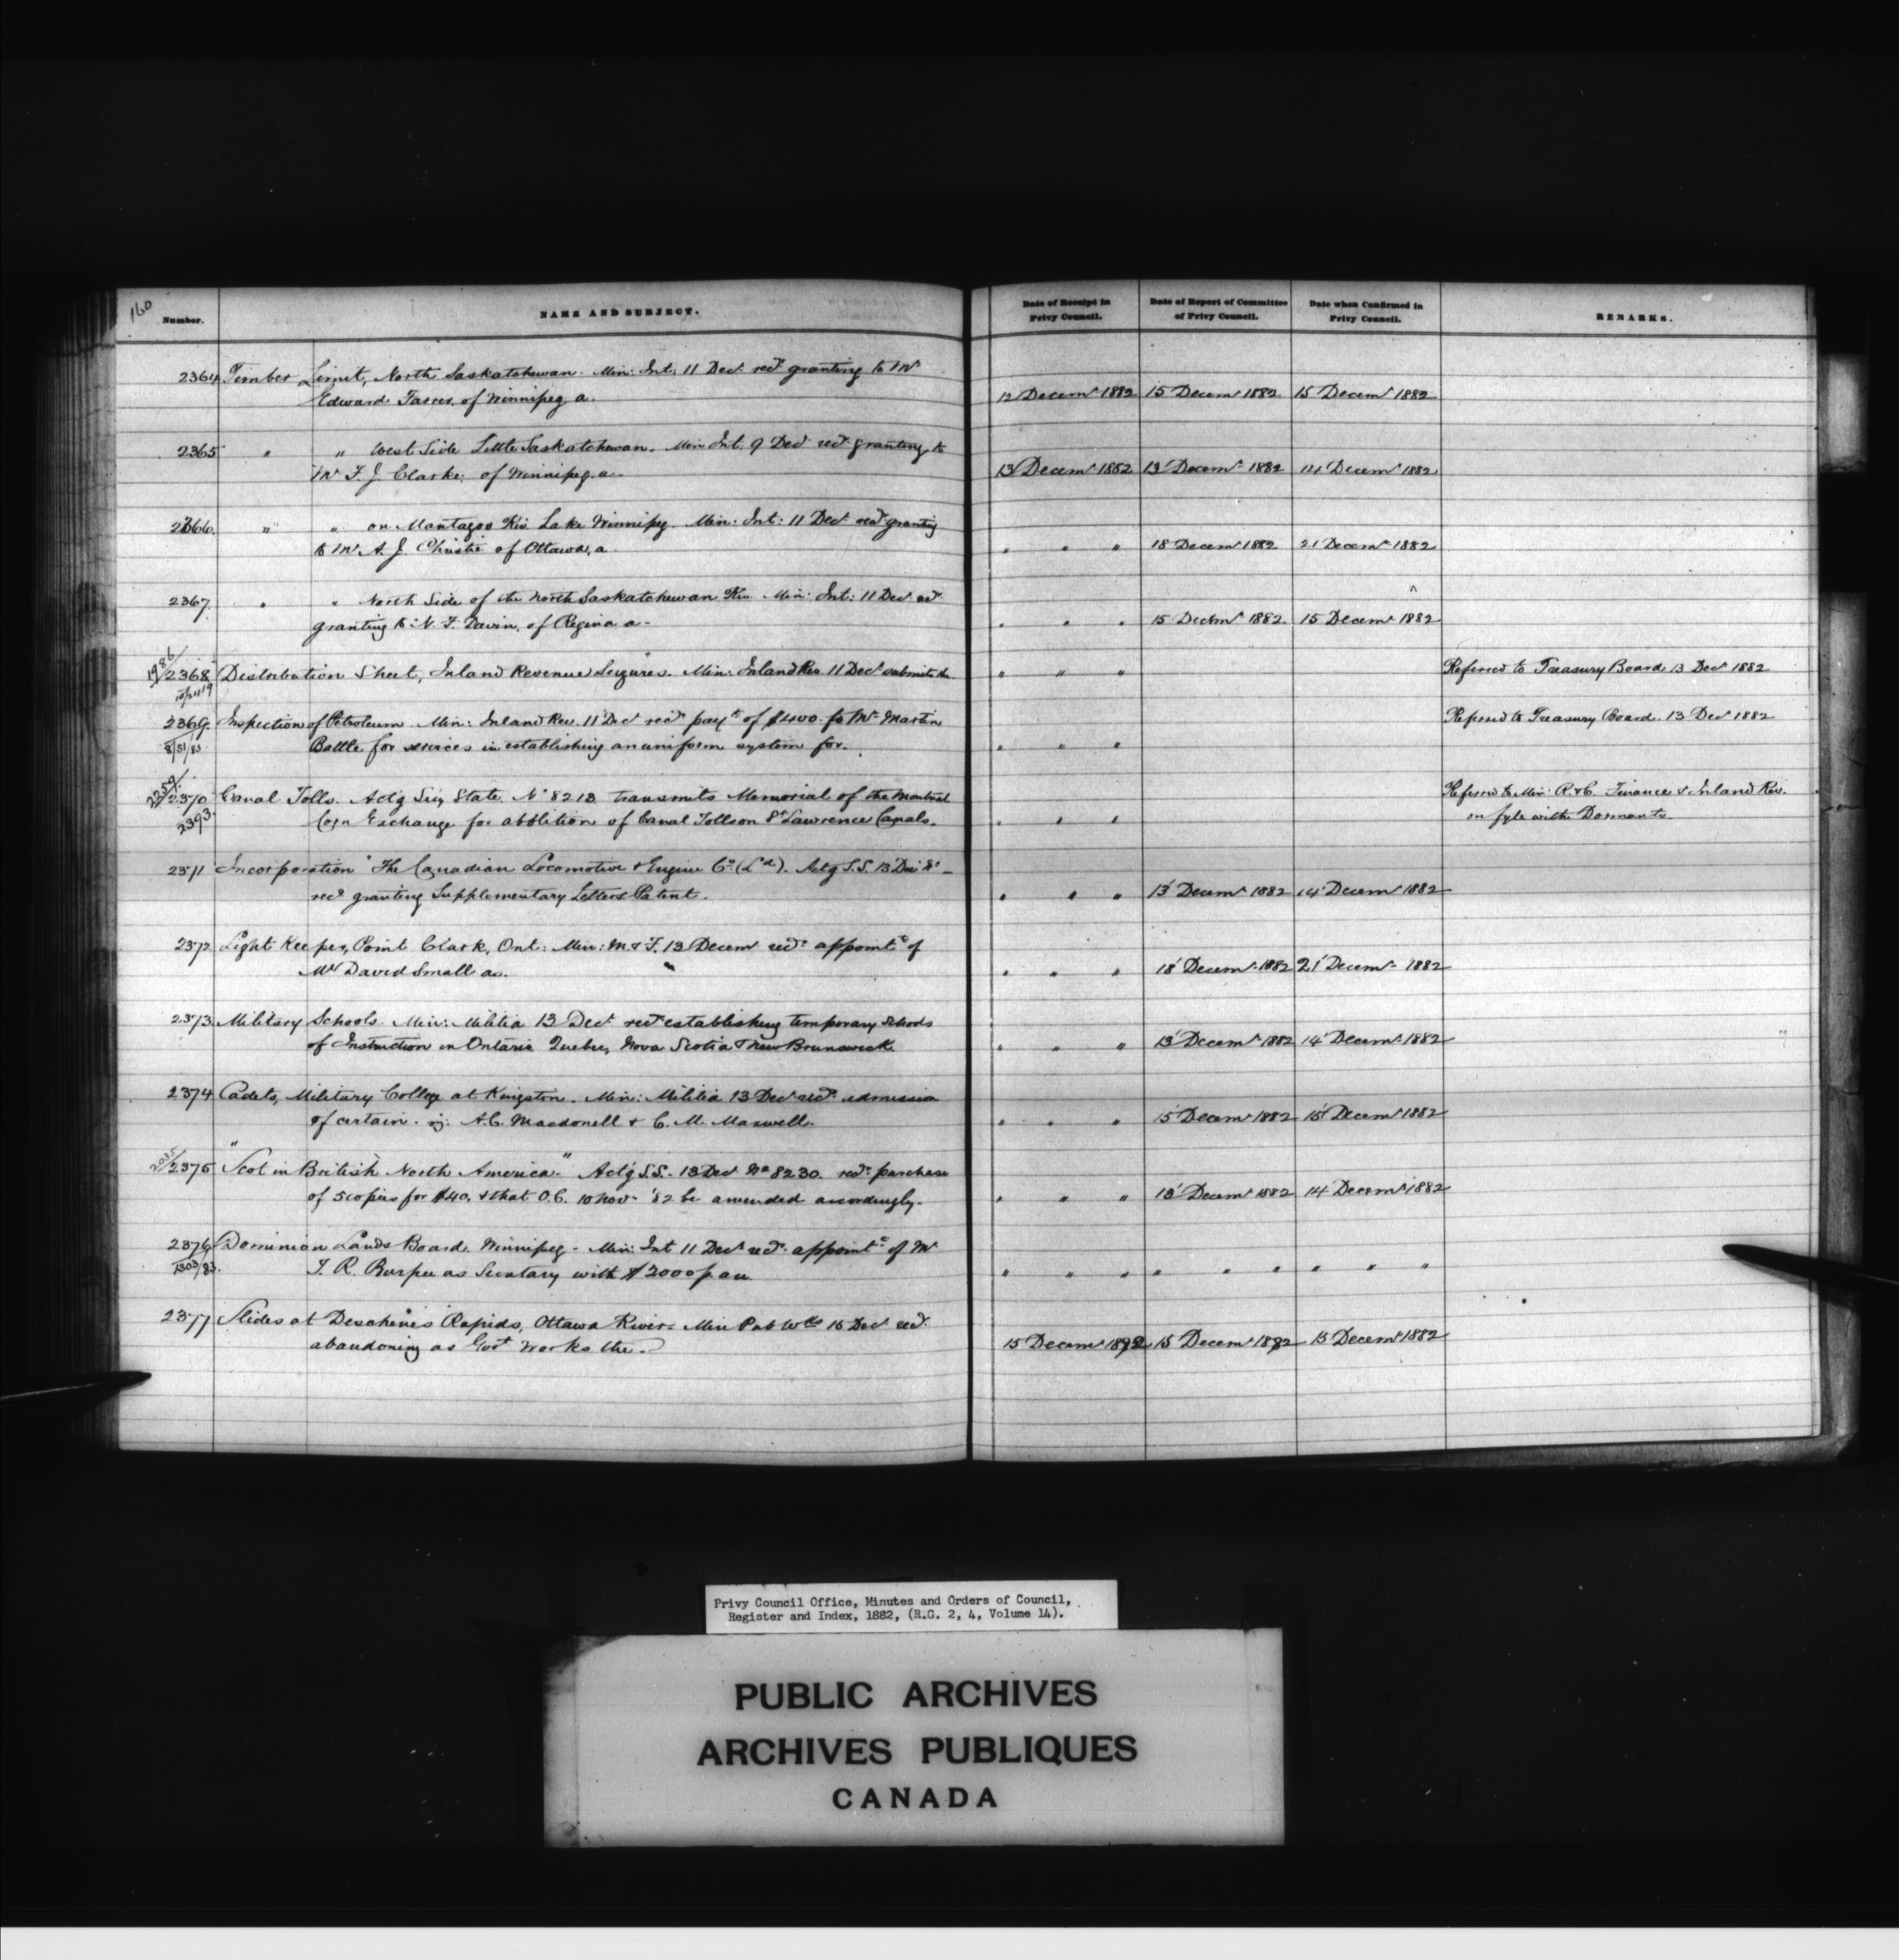 160
Number.
NAME AND SUBJECT.
Date of Receipt in Privy Council.
Date of Report of Committee of Privy Council.
Date when Confirmed in Privy Council.
REMARKS.
2364 Timber Limit, North Saskatchewan. Min: Int: 11 Decr recd granting to Mr
Edward of Winnipeg a. 12 Decemr 1882 15 Decemr 1882 15 Decemr 1882
2365 " " West Side Little Saskatchewan. Min Int. 9 Decr recd granting to
Mr F. J. Clarke, of Winnipeg. a 13 Decemr 1882 13 Decemr 1882 14 Decemr 1882
2366. " " on Mantagoo Riv. Lake Winnipeg. Min: Int: 11 Decr recd granting
to Mr A. J. Christie of Ottawa, a " " " 18 Decemr 1882 21 Decemr 1882
2367 " " North Side of the North Saskatchewan Riv. Min: Int: 11 Decr recd
granting to N. F. Davin, of Regina a - " " " 15 Decemr 1882 15 Decemr 1882
1986/2368 Distribution Sheet, Inland Revenue Seizures. Min: Inland Rev 11 Decr submits the " " " Referred to Treasury Board 13 Decr 1882
2369. Inspection of Petroleum. Min: Inland Rev. 11 Decr recd payt of $400 to Mr Martin Referred to Treasury Board. 13 Decr 1882
Battle for services in establishing an uniform system for. " " "
2259/2370 Canal Tolls. Actg Secy State No 8213 transmits Memorial of the Montreal Referred to Min: R & C Finance & Inland Rev.
2393. Corn Exchange for abolition of Canal Tolls on St Lawrence Canals. " " " on fyle with Dormants
2371 Incorporation "The Canadian Locomotive & Engine Co (Ld). Actg S.S. 13 Decr
recd granting Supplementary Letters Patent. " " " 13 Decemr 1882 14 Decemr 1882
2372 Light Keeper, Point Clark, Ont: Min: M & F. 13 Decemr recd appointt of
Mr David Small as. " " " 18 Decemr 1882 21 Decemr 1882
2373 Military Schools. Min: Militia 13 Decr recd establishing temporary Schools
of Instruction in Ontario Quebec, Nova Scotia & New Brunswick " " " 13 Decemr 1882 14 Decemr 1882
2374 Cadets, Military College at Kingston. Min: Militia 13 Decr recd admission
of certain. viz: A.C. Macdonell & C. M. Maxwell. " " " 15 Decemr 1882 15 Decemr 1882
2375 "Scot in British North America." Actg S.S. 13 Decr No 8230. recd purchase
of 5 copies for $40. & that O.C. 10 Novr '82 be amended accordingly. " " " 13 Decemr 1882 14 Decemr 1882
2376 Dominion Lands Board. Winnipeg - Min: Int 11 Decr recd appointt of Mr
1303/83. T. R. Burpee as Secretary with $2000 p an " " " " " " " " "
2377 Slides at Deschênes Rapids, Ottawa River. Min Pub Wks 15 Decr recd
abandoning as Govt Works the. 15 Decemr 1882 15 Decemr 1882 15 Decemr 1882
Privy Council Office, Minutes and Orders of Council,
Register and Index, 1882, (R.G. 2, 4, Volume 14).
PUBLIC ARCHIVES
ARCHIVES PUBLIQUES
CANADA